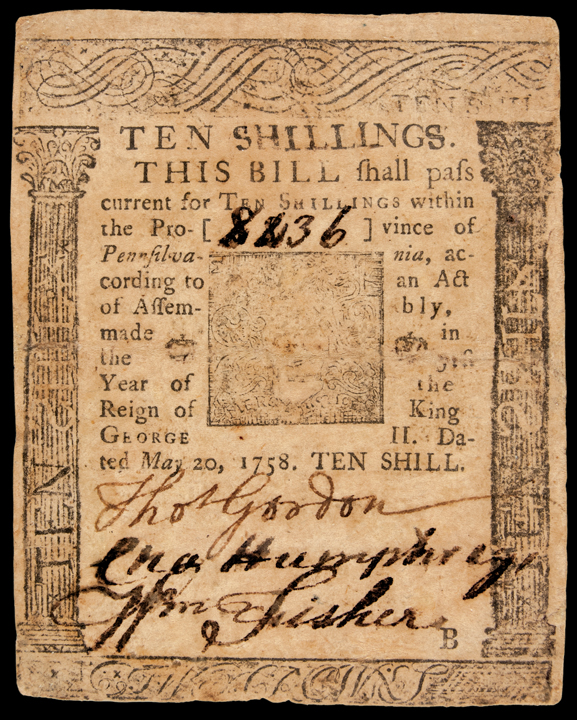 TEN SHILLINGS.
THIS BILL ſhall paſs
current for TEN SHILLINGS within
the Pro- [ 8236 ] vince of
Pennſilva- nia, ac-
cording to an Act
of Aſſem- bly,
made in
the
Year of the
Reign of King
GEORGE II. Da-
ted May 20, 1758. TEN SHILL.
Thos Gordon
Cha Humphreys
Wm Fisher
B
TEN
TEN